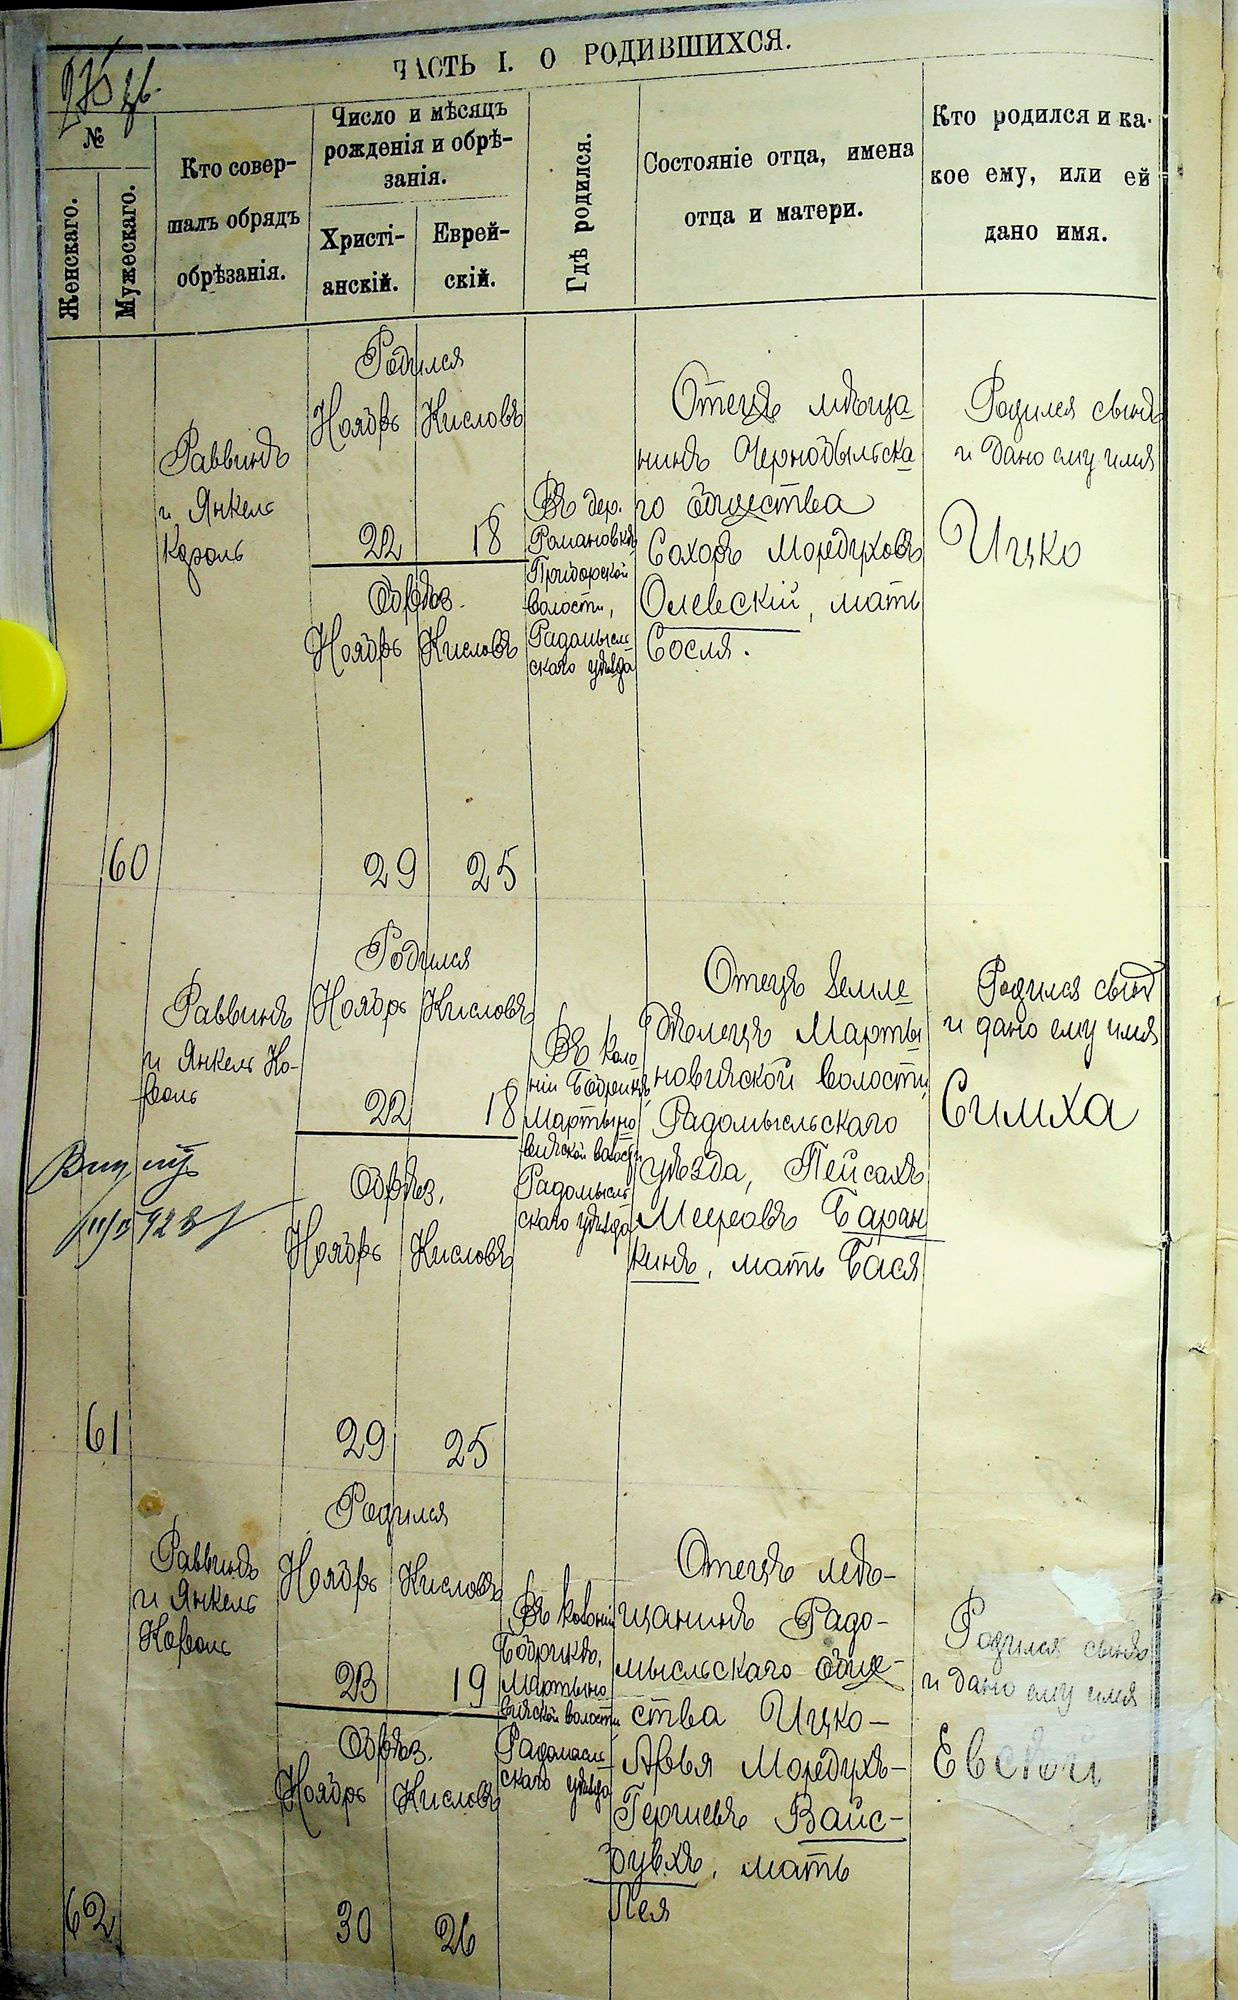 ЧАСТЬ I. О РОДИВШИХСЯ.
№
Женскаго.
Мужескаго.
Кто совер-
шалъ обрядъ
обрѣзанія.
Число и мѣсяцъ
рожденія и обрѣ-
занія.
Христі-
анскій.
Еврей-
скій.
Гдѣ родился.
Состояніе отца, имена
отца и матери.
Кто родился и ка-
кое ему, или ей
дано имя.
60
Раввинъ
и Янкель
Король
Родился
Ноябрь Кисловъ
22 18
Обрѣз.
Ноябрь Кисловъ
29 25
Въ дер.
Романовкѣ
Приборской
волости,
Радомысль
скаго уѣзда
Отецъ мѣща
нинъ Чернобыльска
го общества
Сохоръ Мордуховъ
Олевскій, мать
Сося.
Родился сынъ
и дано ему имя
Ицко
61
Раввинъ
и Янкель Ко-
роль
Родился
Ноябрь Кисловъ
22 18
Обрѣз.
Ноябрь Кисловъ
29 25
Въ коло
ніи Бобрикѣ,
Мартыно
вичской волости
Радомысль
скаго уѣзда
Отецъ земле
дѣлецъ Марты
новичской волости,
Радомысльскаго
уѣзда, Пейсахъ
Мееровъ Баран
кинъ, мать Бася
Родился сынъ
и дано ему имя
Симха
62
Раввинъ
и Янкель
Король
Родился
Ноябрь Кисловъ
23 19
Обрѣз.
Ноябрь Кисловъ
30 26
Въ колоніи
Бобрикѣ,
Мартыно
вичской волости
Радомысль
скаго уѣзда
Отецъ мѣ-
щанинъ Радо-
мысльскаго обще-
ства Ицко-
Арья Мордухъ-
Гершевъ Вайс-
бухъ, мать
Лея
Родился сынъ
и дано ему имя